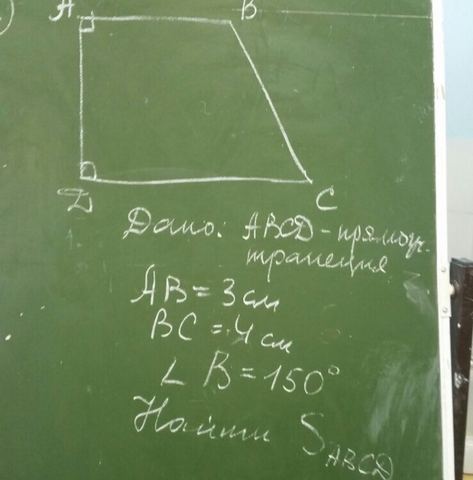 A B
D C
Дано: ABCD - прямоуг.
трапеция
AB = 3 см
BC = 4 см
∠ B = 150°
Найти S ABCD